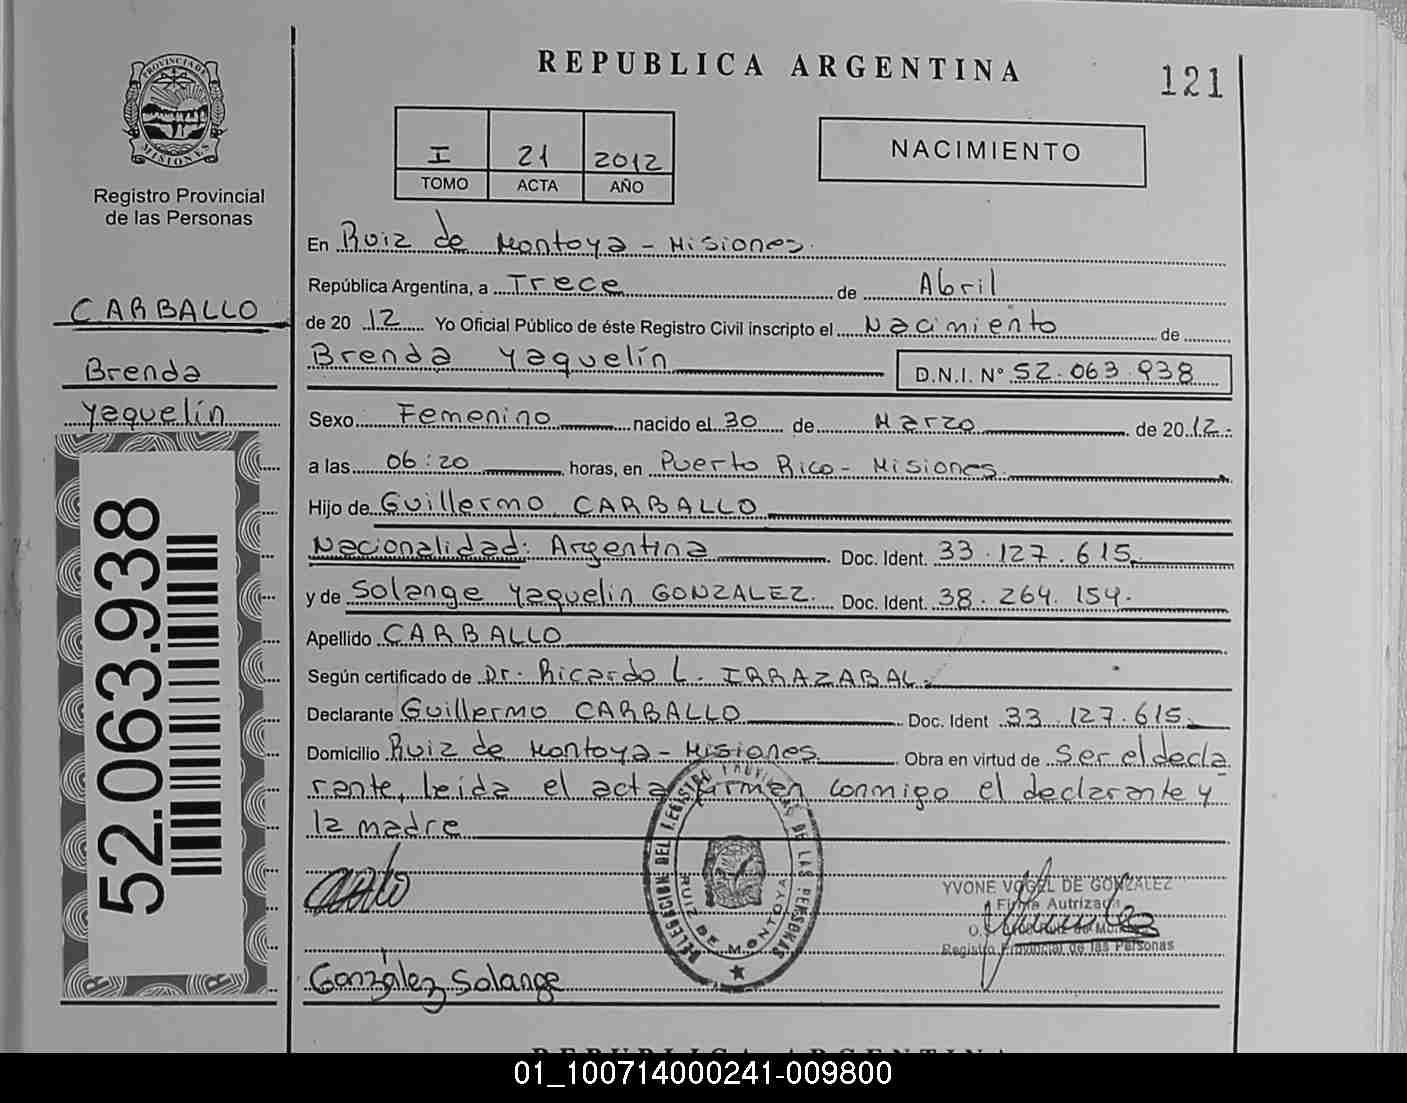 REPUBLICA ARGENTINA
121
PROVINCIA DE
MISIONES
Registro Provincial
de las Personas
I 21 2012
TOMO ACTA AÑO
NACIMIENTO
CARBALLO
Brenda
Yaquelín
52.063.938
En Ruiz de Montoya - Misiones.
República Argentina, a Trece de Abril
de 2012 Yo Oficial Público de éste Registro Civil inscripto el Nacimiento de
Brenda Yaquelín D.N.I. N° 52.063.938
Sexo Femenino nacido el 30 de Marzo de 2012.
a las 06:20 horas, en Puerto Rico - Misiones.
Hijo de Guillermo CARBALLO
Nacionalidad: Argentina Doc. Ident. 33.127.615.
y de Solange Yaquelin GONZALEZ. Doc. Ident. 38.264.154.
Apellido CARBALLO
Según certificado de Dr. Ricardo L. IRRAZABAL.
Declarante Guillermo CARBALLO Doc. Ident 33.127.615.
Domicilio Ruiz de Montoya - Misiones. Obra en virtud de Ser el decla
rante, leída el acta firman conmigo el declarante y
la madre
DELEGACION DEL REGISTRO PROVINCIAL DE LAS PERSONAS
RUIZ DE MONTOYA
YVONE VOGEL DE GONZALEZ
Firma Autrizada
Registro Provincial de las Personas
González Solange
REPUBLICA ARGENTINA
01_100714000241-009800